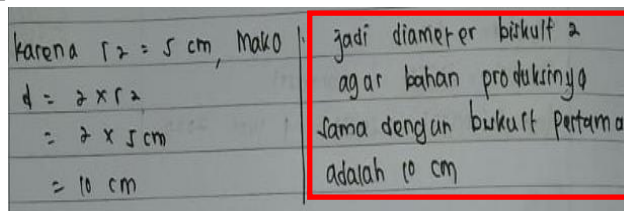 Karena r2 = 5 cm, Mako
d = 2 x r2
= 2 x 5 cm
= 10 cm
jadi diameter biskuit 2
agar bahan produksinya
sama dengan biskuit pertama
adalah 10 cm